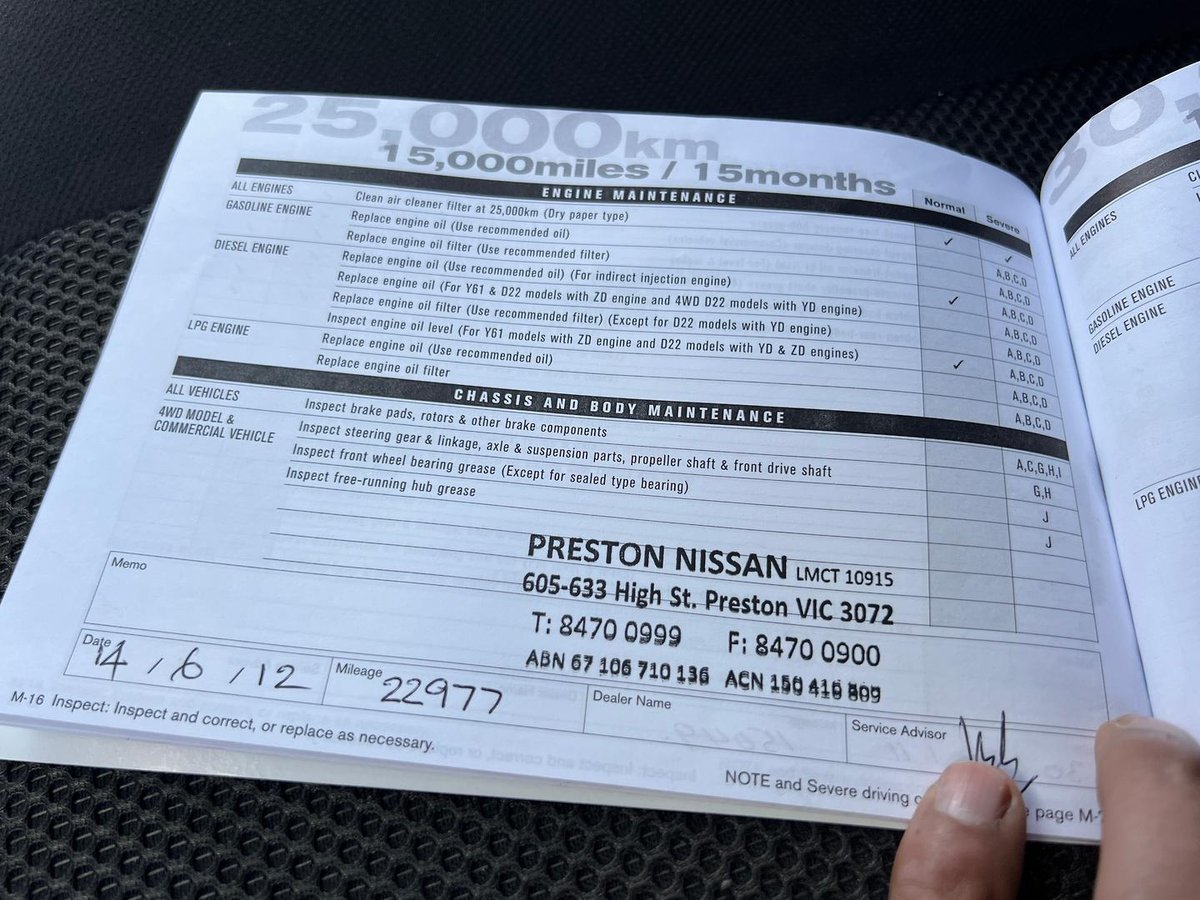 25,000km
15,000miles / 15months
ENGINE MAINTENANCE Normal Severe
ALL ENGINES Clean air cleaner filter at 25,000km (Dry paper type) ✓
GASOLINE ENGINE Replace engine oil (Use recommended oil) ✓ A,B,C,D
Replace engine oil filter (Use recommended filter) A,B,C,D
DIESEL ENGINE Replace engine oil (Use recommended oil) (For indirect injection engine) ✓ A,B,C,D
Replace engine oil (For Y61 & D22 models with ZD engine and 4WD D22 models with YD engine) A,B,C,D
Replace engine oil filter (Use recommended filter) (Except for D22 models with YD engine) A,B,C,D
Inspect engine oil level (For Y61 models with ZD engine and D22 models with YD & ZD engines) ✓
LPG ENGINE Replace engine oil (Use recommended oil) A,B,C,D
Replace engine oil filter A,B,C,D
CHASSIS AND BODY MAINTENANCE
ALL VEHICLES Inspect brake pads, rotors & other brake components A,C,G,H,I
4WD MODEL &
COMMERCIAL VEHICLE Inspect steering gear & linkage, axle & suspension parts, propeller shaft & front drive shaft G,H
Inspect front wheel bearing grease (Except for sealed type bearing) J
Inspect free-running hub grease J
PRESTON NISSAN LMCT 10915
605-633 High St. Preston VIC 3072
T: 8470 0999 F: 8470 0900
ABN 67 106 710 136 ACN 150 416 809
Memo
Date 14/6/12 Mileage 22977 Dealer Name Service Advisor
M-16 Inspect: Inspect and correct, or replace as necessary.
NOTE and Severe driving page M-
30
ALL ENGINES
GASOLINE ENGINE
DIESEL ENGINE
LPG ENGIN